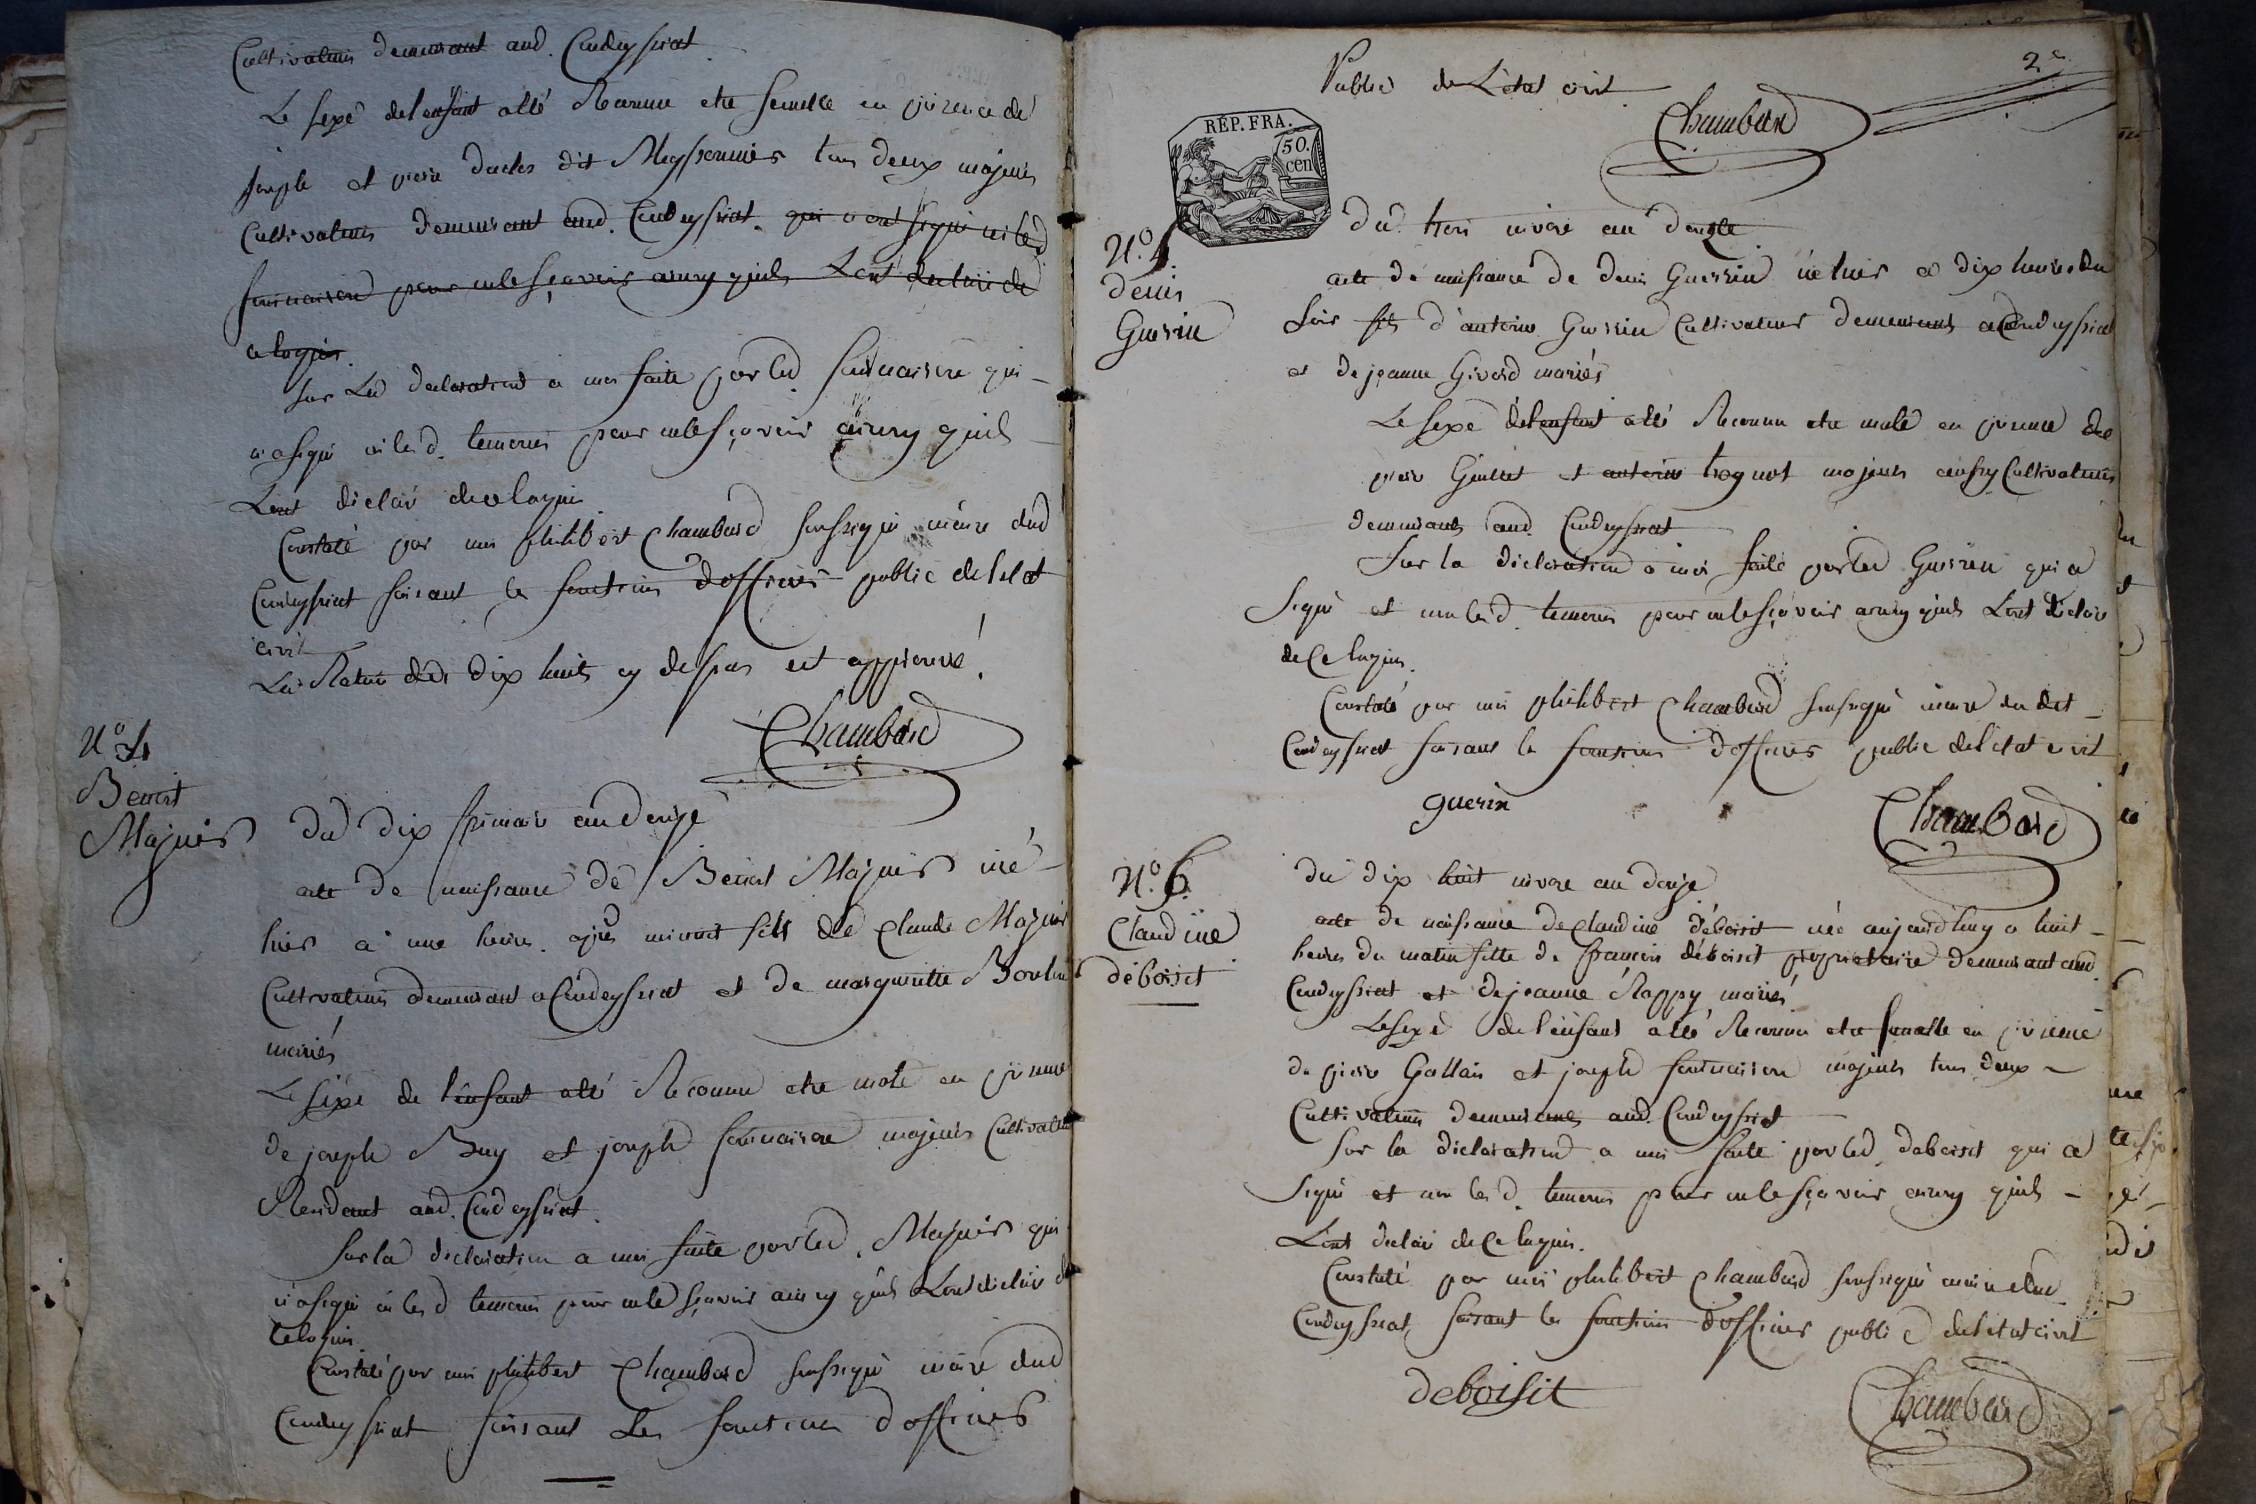 Cultivateurs demeurant aud. Condeyssiat
Le sexe de l'enfant a été Reconnu etre femelle en présence de
joseph et piere duclos dit Meyssonnier tous deux majeurs
Cultivateurs demeurant aud. Condeyssiat. qui n'ont signé ni led
fournaison pour ne le sçavoir ainsy quils L'ont declaré de
ce laquis.
Sur La declaration a moi faite par led. fournaison qui
n'a signé ni les d. temoins pour ne le sçavoir ainsy quils
L'ont déclaré de ce laquis
Constaté par moi philibert Chambard soussigné maire dud
Condeyssiat faisant les fonctions d'officier public de l'etat
civil
La Rature des dix huit cy dessus est approuvé.
Chambard
N.º 4
Benoit
Majuer
Du dix frimaire an douze
acte de naissance de Benoit Majuer né
hier a une heure après minuit fils de Claude Majuer
Cultivateur demeurant a Condeyssiat et de margueritte Boulu
mariés
Le sexe de l'enfant a été Reconnu etre mâle en présence
de joseph Buy et joseph fournaison majeurs Cultivateurs
Residant aud. Condeyssiat.
Sur la déclaration a moi faite par led. Majuer qui
n'a signé ni les d temoins pour ne le sçavoir ainsy quils L'ont déclaré de
ce laquis.
Constaté par moi philibert Chambard soussigné maire dud
Condeyssiat faisant Les fonctions d'officier
2e
Public de L'état civil
Chambard
RÉP. FRA.
50.
cen
N.º 5
denis
Guerin
Du trois nivose an douze
acte de naissance de denis Guerrin né hier a dix heures du
Soir fils d'antoine Guerrin Cultivateur demeurant a Condeyssiat
et de jeanne Givord mariés
Le sexe de l'enfant a été Reconnu etre male en présence de
piere Guillet et antoine troguet majeurs aussy Cultivateurs
demeurants aud. Condeyssiat
Sur la déclaration a moi faite par led Guerrin qui a
signé et non les d. temoins pour ne le sçavoir ainsy quils L'ont déclaré
de Ce laquis.
Constaté par moi philibert Chambard soussigné maire dudit
Condeyssiat faisant les fonctions d'officier public de l'etat civil
guerin
Chambard
N.º 6.
Claudine
déboisit
Du dix huit nivose an douze
acte de naissance de Claudine déboisit née aujourd'huy a huit
heures du matin fille de françois déboisit propriétaire demeurant aud
Condeyssiat et de jeanne Rappy mariés
Le sexe de l'enfant a été Reconnu etre femelle en présence
de piere Gallais et joseph fournaison majeurs tous deux
Cultivateurs demeurans aud. Condeyssiat
Sur la déclaration a moi faite par led. deboisit qui a
signé et non les d. temoins pour ne le sçavoir ainsy quils
L'ont déclaré de Ce laquis.
Constaté par moi philibert Chambard soussigné maire dud
Condeyssiat, faisant les fonctions d'officier public de l'etat civil
deboisit
Chambard